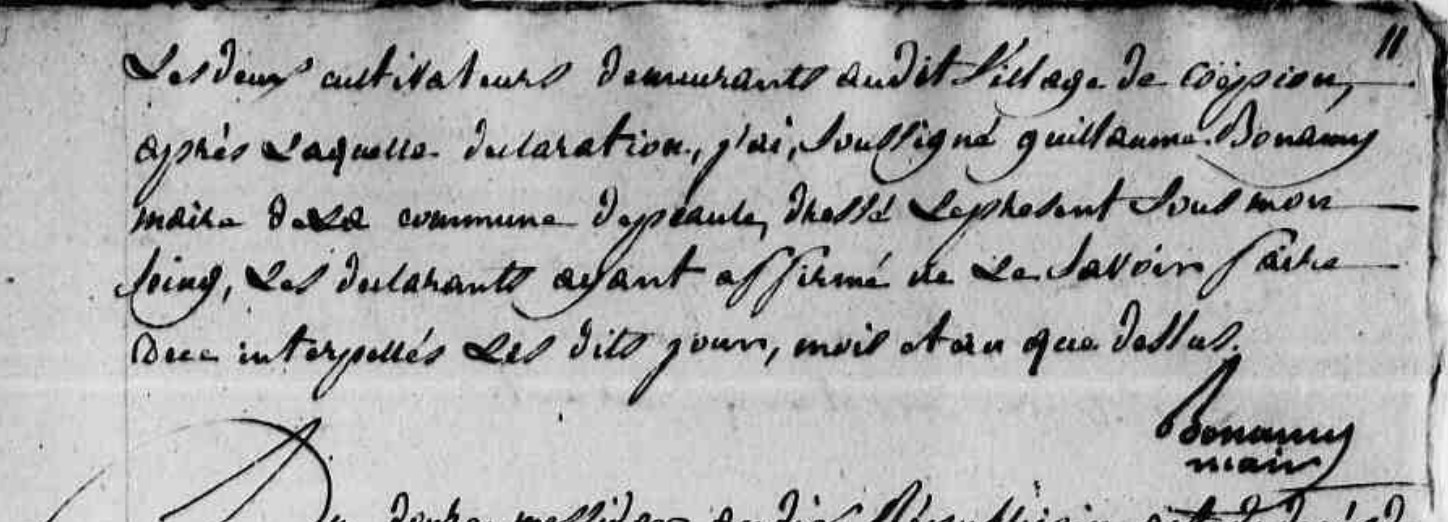 11
Les deux cultivateurs demeurants audit Village de Coëpion,
après Laquelle declaration, j'ai, Soussigné guillaume Bonamy
maire de La commune de peaule, dressé Le present Sous mon
Seing, Les declarants ayant affirmé ne Le Savoir faire
Duee interpellés Les dits jour, mois et an que dessus.
Bonamy
maire
Du douze messidor an dix Républicain acte de